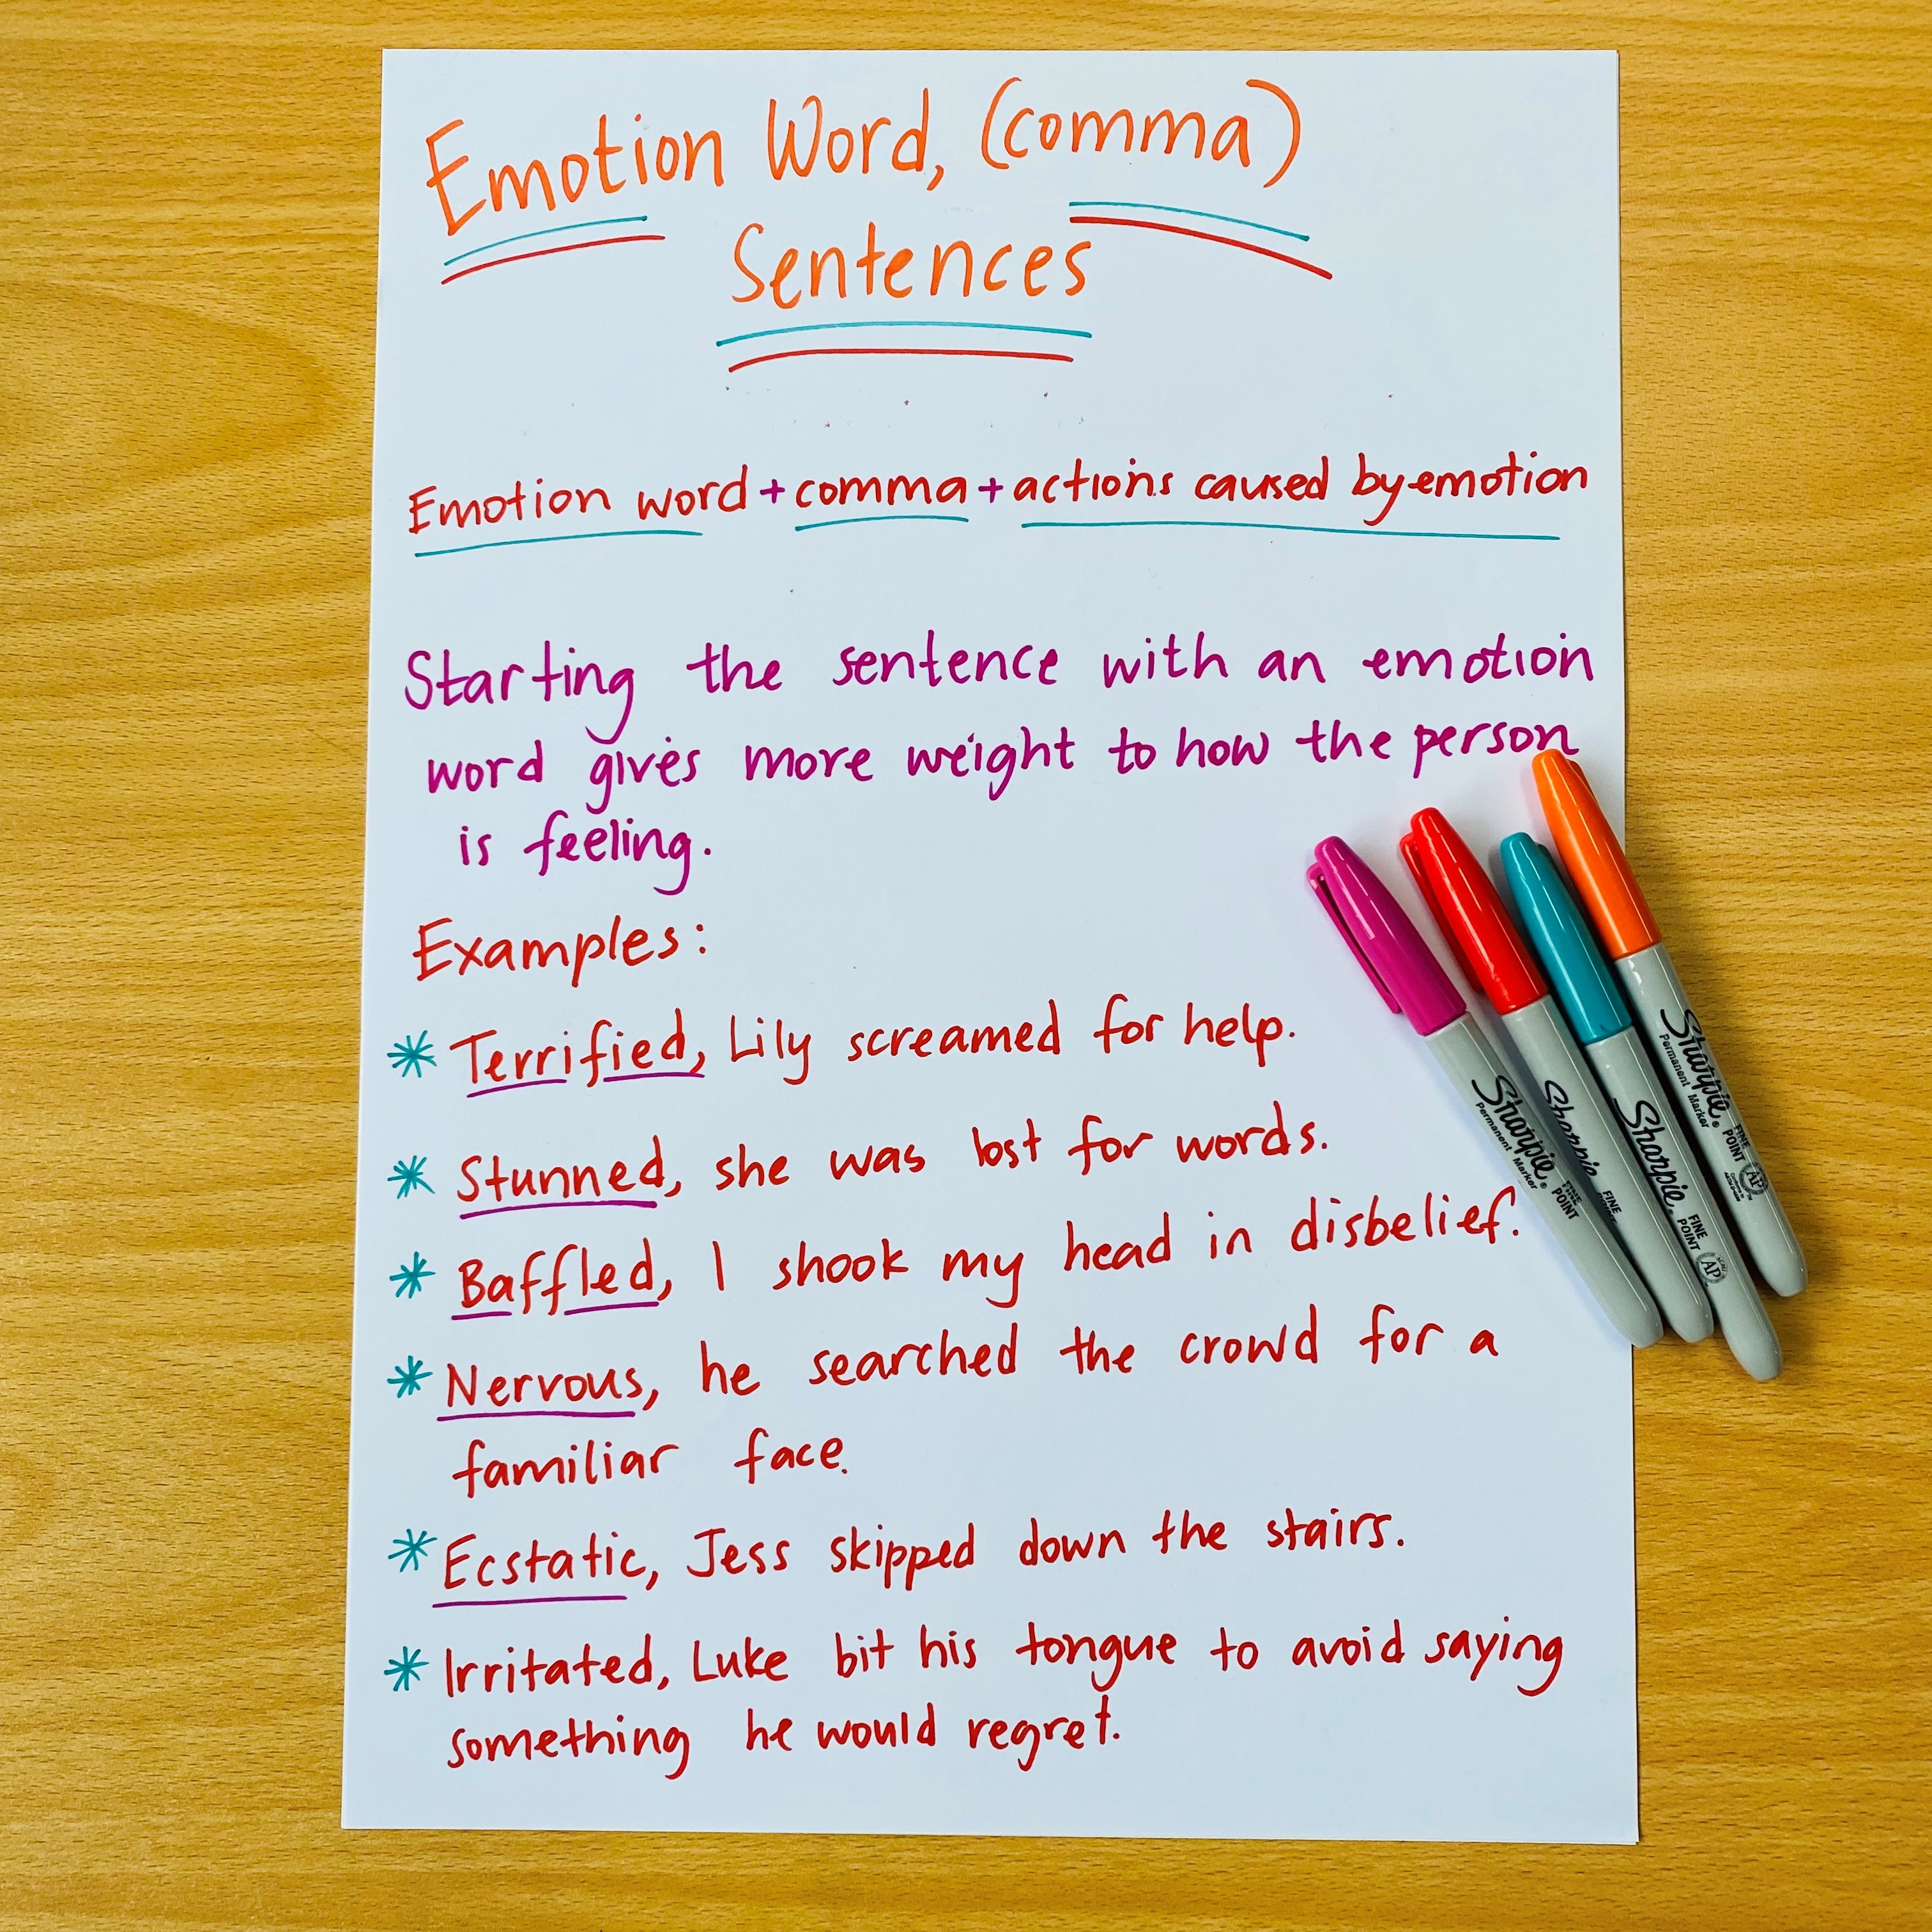 Emotion Word, (comma)
Sentences
Emotion word + comma + actions caused by emotion
Starting the sentence with an emotion
word gives more weight to how the person
is feeling.
Examples:
* Terrified, Lily screamed for help.
* Stunned, she was lost for words.
* Baffled, I shook my head in disbelief.
* Nervous, he searched the crowd for a
familiar face.
* Ecstatic, Jess skipped down the stairs.
* Irritated, Luke bit his tongue to avoid saying
something he would regret.
Sharpie
Permanent Marker
FINE
POINT
Sharpie
FINE
Sharpie
FINE
POINT
AP
Sharpie
Permanent Marker
FINE
POINT
AP